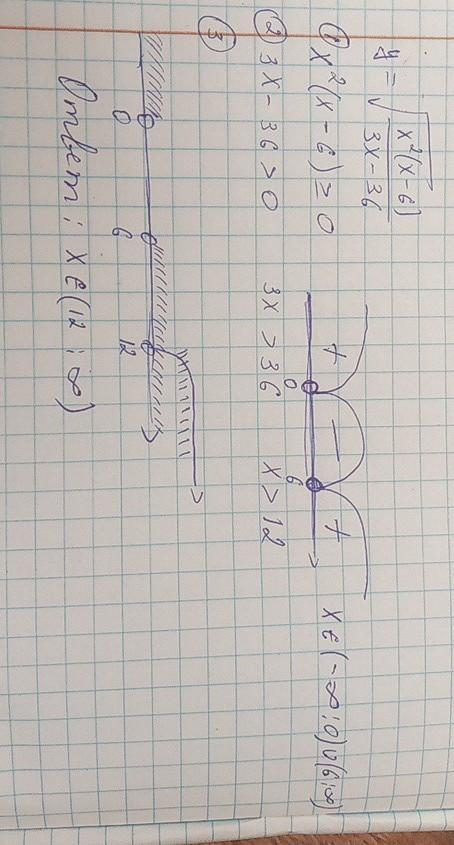 y = √(x²(x-6)/(3x-36))
① x²(x-6) ≥ 0
+ − +
0 6
x ∈ (-∞; 0) ∪ (6; ∞)
② 3x - 36 > 0 3x > 36 x > 12
③
0 6 12
Ответ: x ∈ (12; ∞)